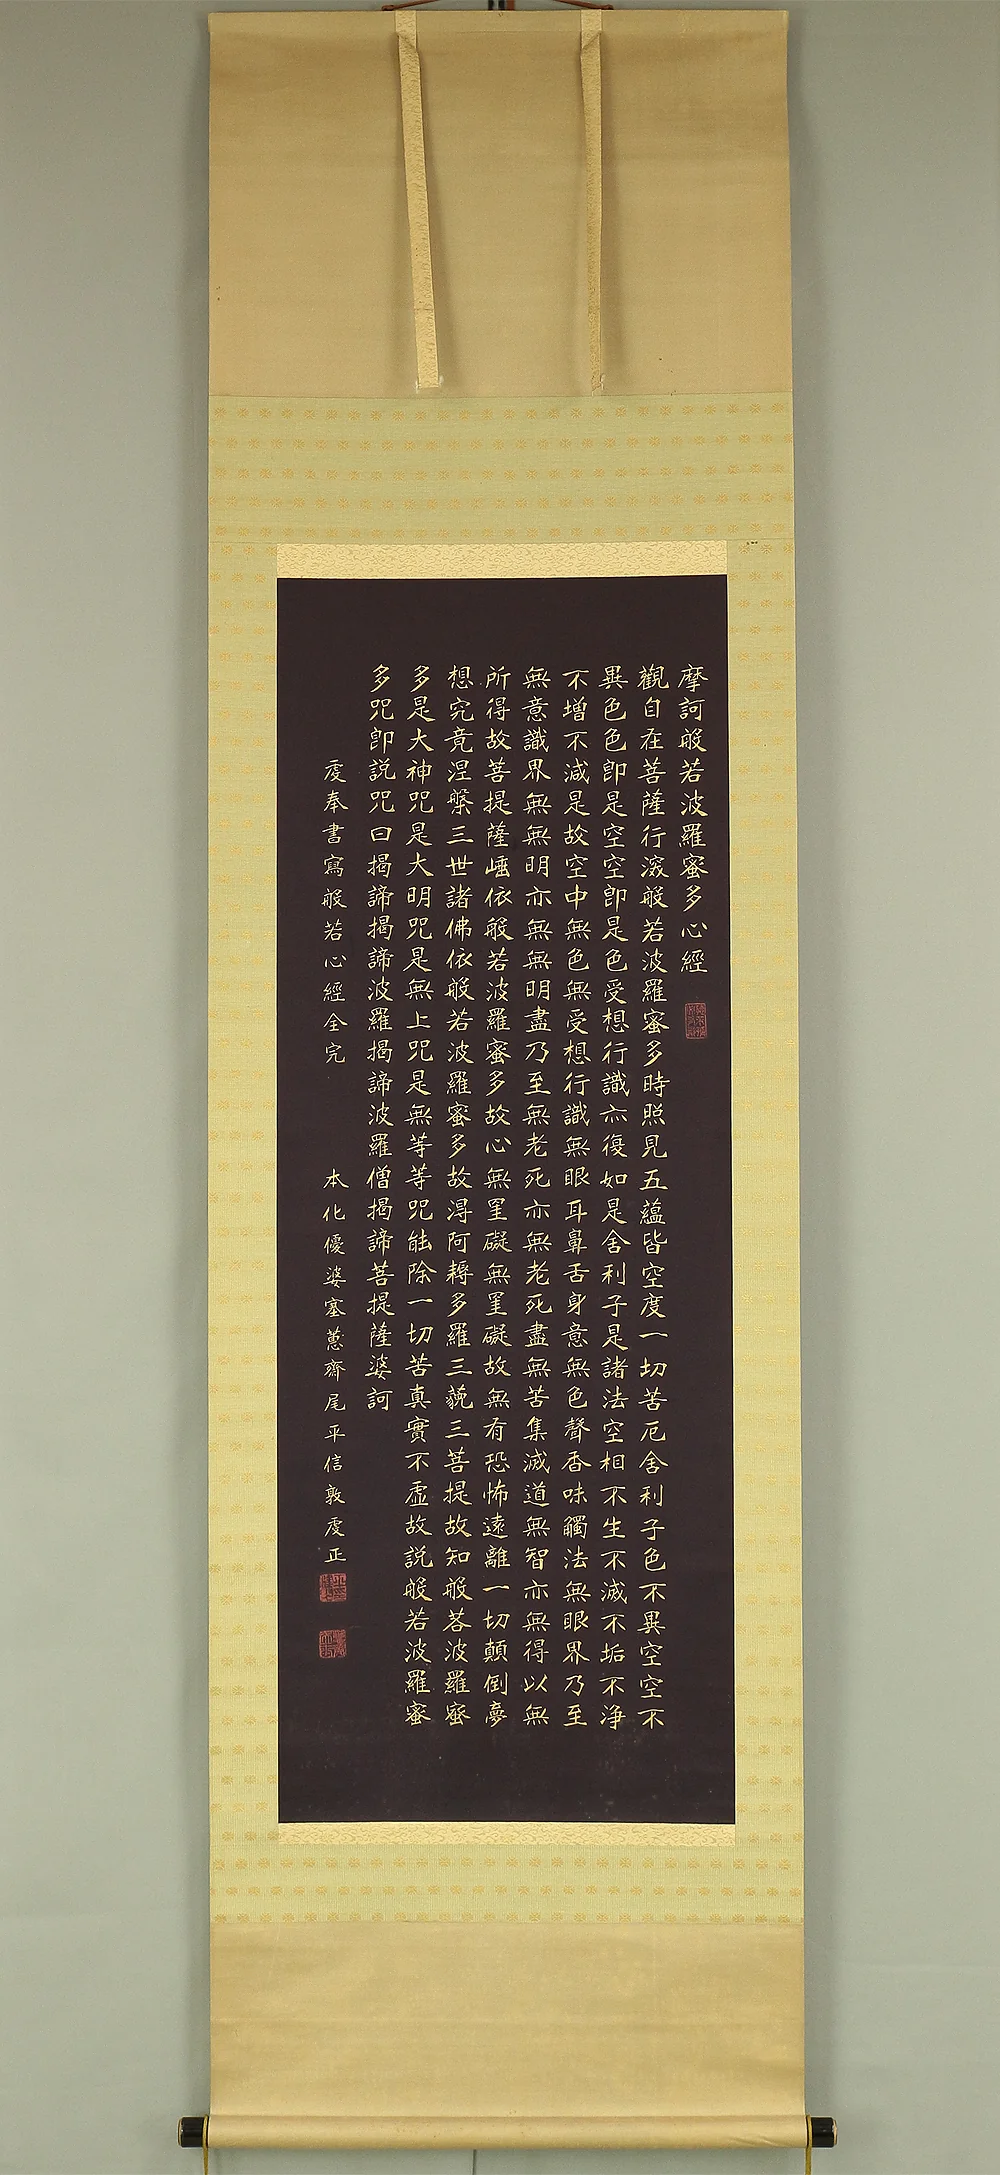 摩訶般若波羅蜜多心經
觀自在菩薩行深般若波羅蜜多時照見五蘊皆空度一切苦厄舍利子色不異空空不
異色色即是空空即是色受想行識亦復如是舍利子是諸法空相不生不滅不垢不淨
不增不減是故空中無色無受想行識無眼耳鼻舌身意無色聲香味觸法無眼界乃至
無意識界無無明亦無無明盡乃至無老死亦無老死盡無苦集滅道無智亦無得以無
所得故菩提薩埵依般若波羅蜜多故心無罣礙無罣礙故無有恐怖遠離一切顛倒夢
想究竟涅槃三世諸佛依般若波羅蜜多故得阿耨多羅三藐三菩提故知般若波羅蜜
多是大神咒是大明咒是無上咒是無等等咒能除一切苦真實不虛故説般若波羅蜜
多咒即説咒曰揭諦揭諦波羅揭諦波羅僧揭諦菩提薩婆訶
虔奉書寫般若心經全完
本化優婆塞蕙齋尾平信敦虔正